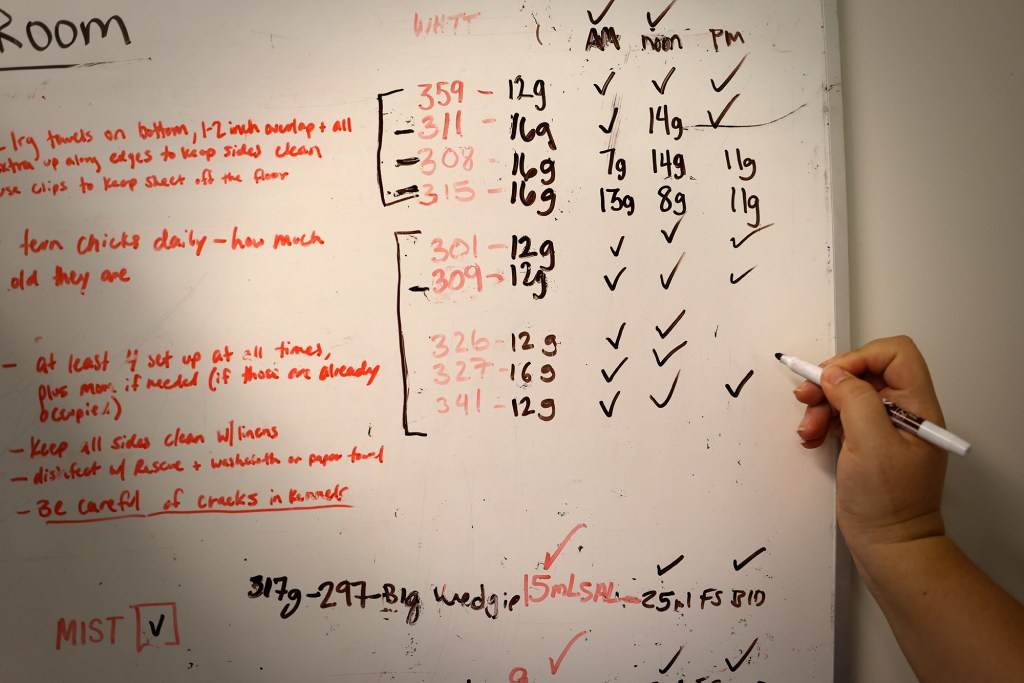 Room
WHTT
AM noon PM
359 - 12g ✓ ✓ ✓
- 311 - 16g ✓ 14g ✓
- 308 - 16g 7g 14g 11g
- 315 - 16g 13g 8g 11g
301 - 12g ✓ ✓ ✓
- 309 - 12g ✓ ✓ ✓
326 - 12g ✓ ✓
327 - 16g ✓ ✓
341 - 12g ✓ ✓ ✓
towels on bottom, 1-2 inch overlap + all
extra up along edges to keep sides clean
use clips to keep sheet off the floor
tern chicks daily - how much
old they are
- at least 4 set up at all times,
plus more if needed (if those are already
occupied)
- Keep all sides clean w/ linens
- disinfect w/ Rescue + washcloth or paper towel
- Be careful of cracks in kennels
317g-297-Big Wedgie 15mL SAL - 25ml FS BID
MIST ✓